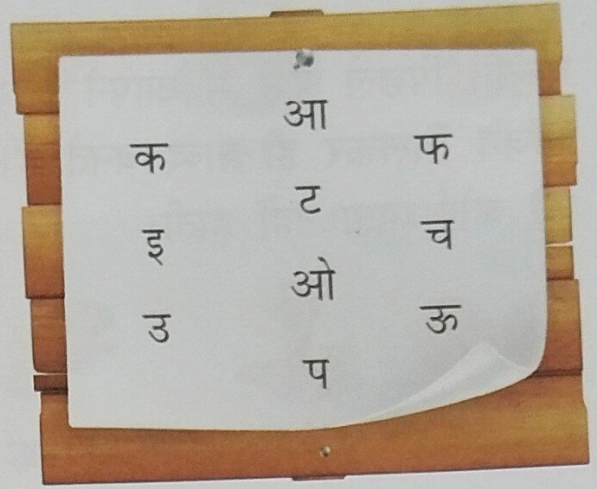 आ
क
फ
ट
इ
च
ओ
उ
ऊ
प